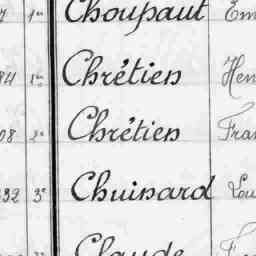 7 1er Choupaut Em
84 1er Chrétien Hen
08 2e Chrétien Fran
232 3e Chuinard Lou
Claude